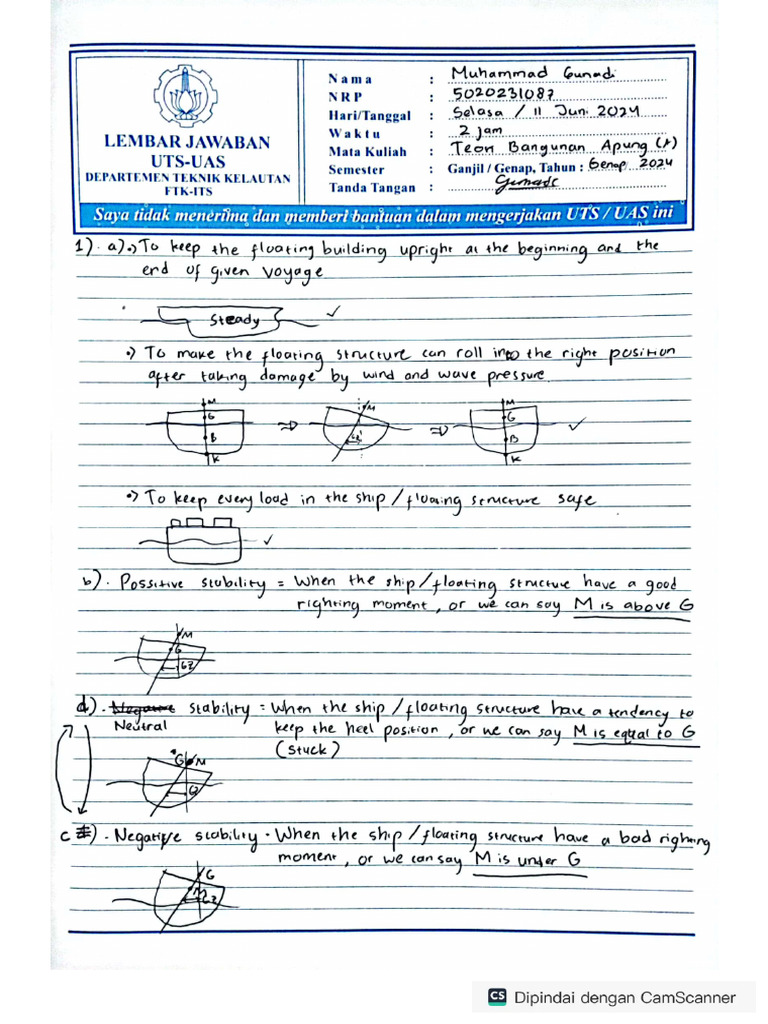 LEMBAR JAWABAN
UTS-UAS
DEPARTEMEN TEKNIK KELAUTAN
FTK-ITS
Nama : Muhammad Gunadi
NRP : 5020231087
Hari/Tanggal : Selasa / 11 Juni 2024
Waktu : 2 jam
Mata Kuliah : Teori Bangunan Apung (A)
Semester : Ganjil / Genap, Tahun : Genap 2024
Tanda Tangan :
Saya tidak menerima dan memberi bantuan dalam mengerjakan UTS / UAS ini
1). a).•) To keep the floating building upright at the beginning and the
end of given voyage
Steady
•) To make the floating structure can roll into the right position
after taking damage by wind and wave pressure.
M M M
G G
B GZ B
K K
•) To keep every load in the ship / floating structure safe
b). Possitive stability = When the ship / floating structure have a good
righting moment, or we can say M is above G
M
G
GZ
d). Negative stability = When the ship / floating structure have a tendency to
Neutral keep the heel position, or we can say M is equal to G
(stuck)
G M
GZ
c). Negatife stability = When the ship / floating structure have a bad righting
moment, or we can say M is under G
G
M
GZ
CS Dipindai dengan CamScanner